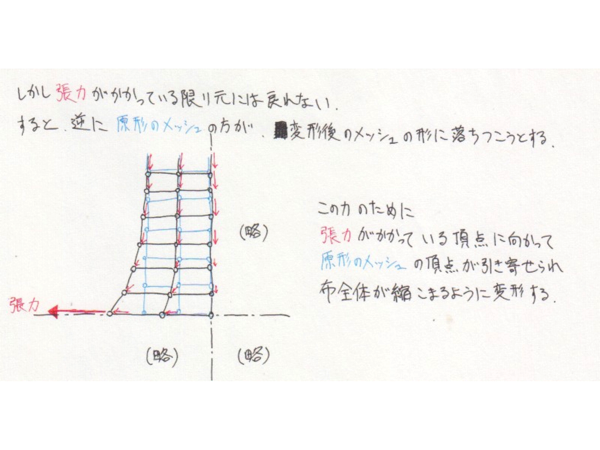 しかし張力がかかっている限り元には戻れない.
すると、逆に 原形のメッシュの方が、変形後のメッシュの形に落ちつこうとする.
(略)
この力のために
張力がかかっている頂点に向かって
原形のメッシュの頂点が引き寄せられ
布全体が縮こまるように変形する.
張力
(略)
(略)